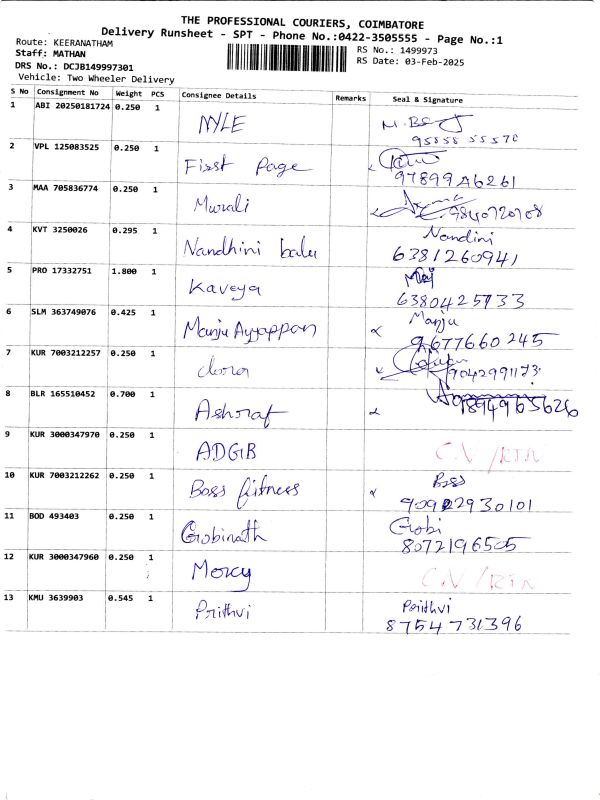 THE PROFESSIONAL COURIERS, COIMBATORE
Delivery Runsheet - SPT - Phone No.:0422-3505555 - Page No.:1
Route: KEERANATHAM
RS No.: 1499973
Staff: MATHAN
RS Date: 03-Feb-2025
DRS No.: DCJB149997301
Vehicle: Two Wheeler Delivery
S No Consignment No Weight PCS Consignee Details Remarks Seal & Signature
1 ABI 20250181724 0.250 1 NYLE
2 VPL 125083525 0.250 1 First Page
97899 A6261
3 MAA 705836774 0.250 1 Murali
9840720708
4 KVT 3250026 0.295 1 Nandhini balu Nandini
6381260941
5 PRO 17332751 1.800 1 Kaveya
6380425733
6 SLM 363749076 0.425 1 Manju Ayyappan Manju
9677660245
7 KUR 7003212257 0.250 1
9042991173
8 BLR 165510452 0.700 1 Ashraf
9894965626
9 KUR 3000347970 0.250 1 ADGB C.N /RTN
10 KUR 7003212262 0.250 1 Boss fitness Boss
90922930101
11 BOD 493403 0.250 1 Gobinath Gobi
8072196505
12 KUR 3000347960 0.250 1 Mercy C.N /RTN
13 KMU 3639903 0.545 1 Prithvi Prithvi
8754731396